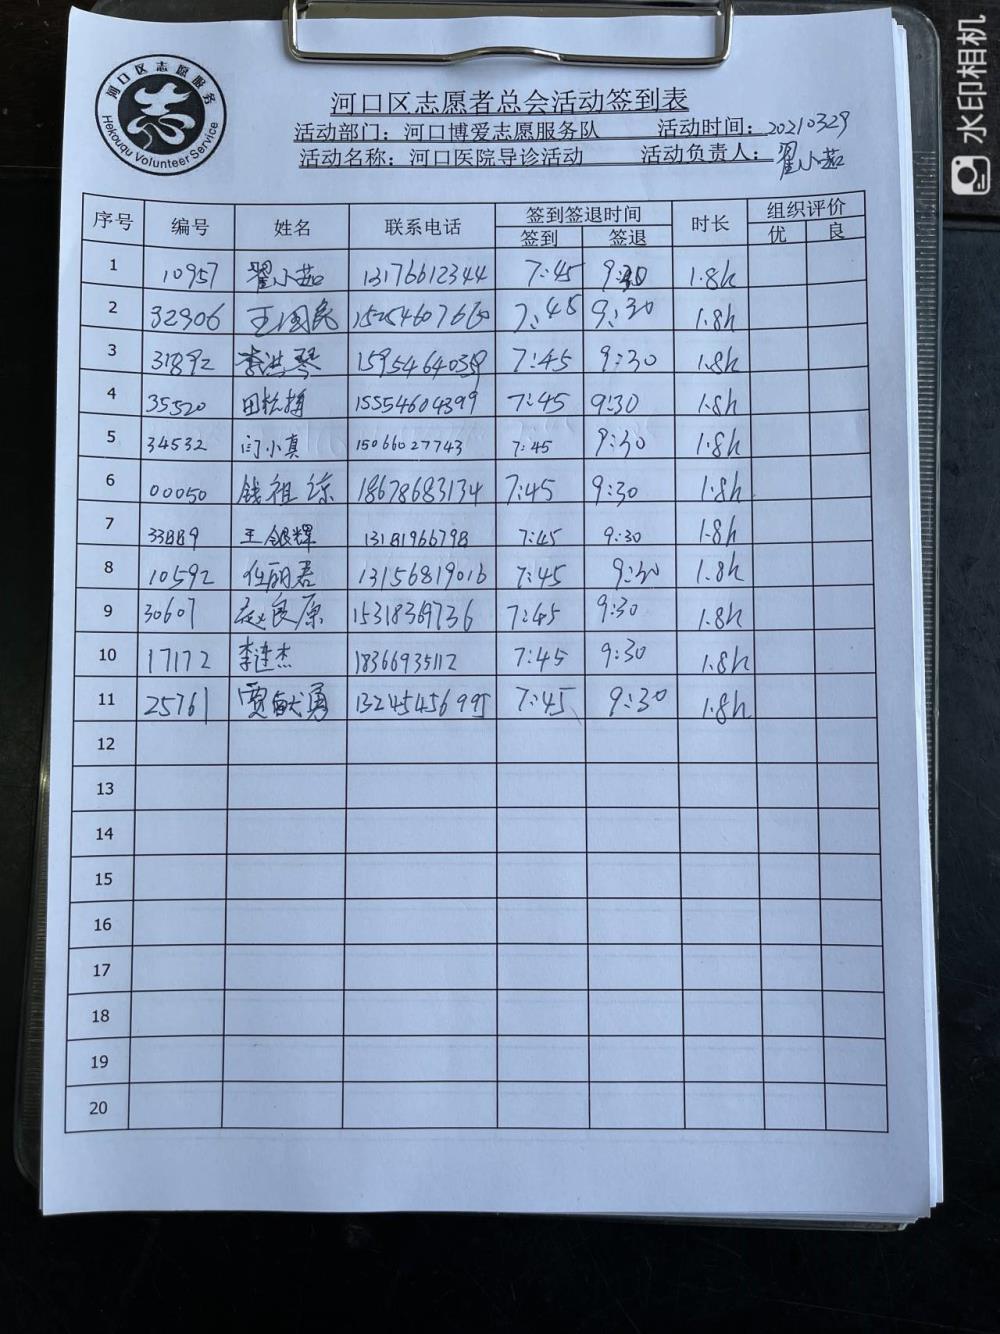 河口区志愿服务
Hekouqu Volunteer Service
水印相机
河口区志愿者总会活动签到表
活动部门：河口博爱志愿服务队 活动时间：20210329
活动名称：河口医院导诊活动 活动负责人：翟小茹
序号 编号 姓名 联系电话 签到签退时间 时长 组织评价
签到 签退 优 良
1 10957 翟小茹 13176612344 7:45 9:30 1.8h
2 32906 王国民 15254607660 7:45 9:30 1.8h
3 31892 李洪琴 15954640359 7:45 9:30 1.8h
4 35520 田 15554604399 7:45 9:30 1.8h
5 34532 闫小真 15066027743 7:45 9:30 1.8h
6 00050 钱祖琼 18678683134 7:45 9:30 1.8h
7 33889 王银辉 13181966798 7:45 9:30 1.8h
8 10592 任丽君 13156819016 7:45 9:30 1.8h
9 30607 赵良原 15318369736 7:45 9:30 1.8h
10 17172 李连杰 18366935112 7:45 9:30 1.8h
11 25761 贾献勇 13245456995 7:45 9:30 1.8h
12
13
14
15
16
17
18
19
20